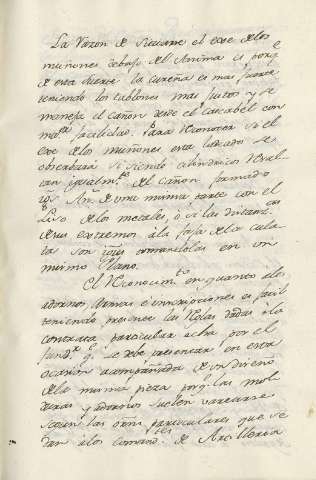 La razon de situarse el exe de los
muñones debajo del Anima es porq.e
de esta suerte la cureña es mas fuerte
teniendo los tablones mas juntos y se
maneja el cañon desde el cascabel con
mas facilidad. Para reconocer si el
exe de los muñones esta ladeado se
observará si siendo cilindricos resal-
tan igualm.te del cañon formado
de una misma parte con el
liso de los metales, ò si las distanc.as
de sus extremos à la faja de la cula-
ta son ig.s en un
mismo Plano.
El reconocim.to en quanto a los
adornos Armas e inscripciones es facil
teniendo presentes las notas dadas à la
contrata particular echa por el
fund.or q.e se debe presentar en esta
ocasion acompañada de un diseño
de la misma pieza porq.e las mol-
duras y adornos suelen variarse
segun las orn.s particulares que se
dan à los comand.tes de Artilleria